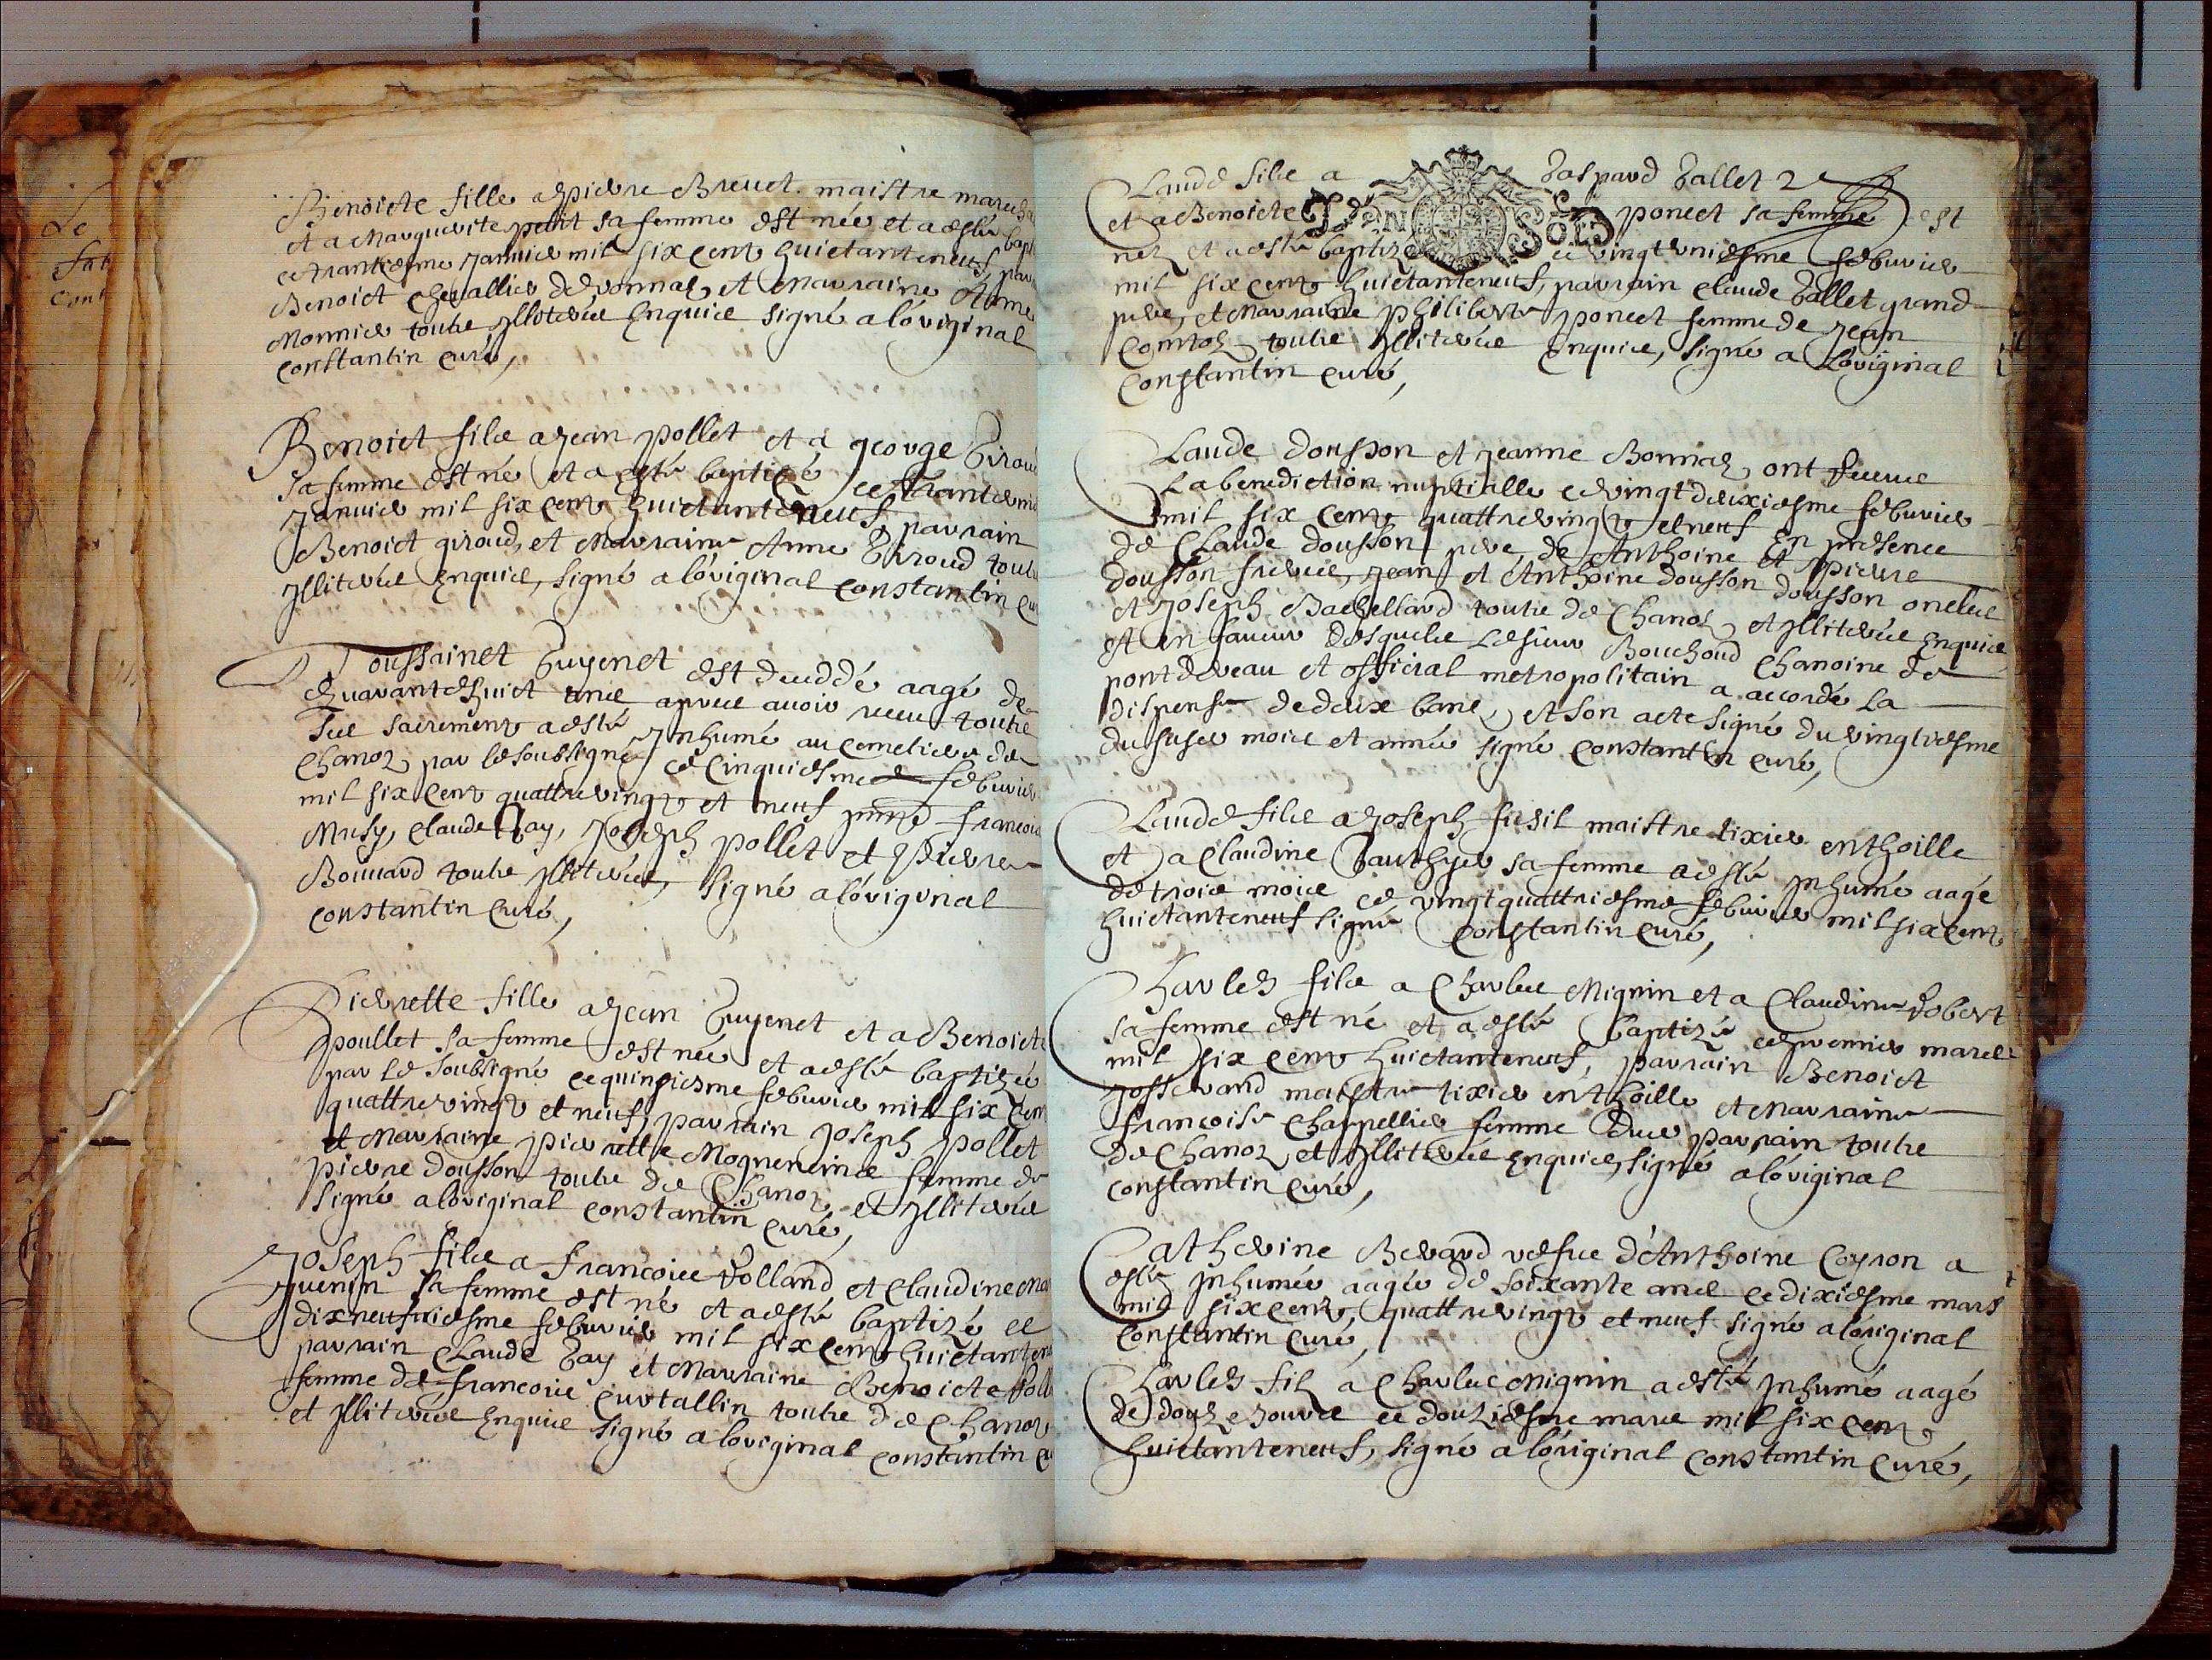 Le
fut
Cont
Benoicte fille a pierre Breuet maistre marech
et a Marguerite petit sa femme est née et a esté bapt
ce trantiesme januier mil six cent huictanteneuf, par
Benoict chevallier de vonnas et Marraine Anne
Monnier toutes illiterées enquis signé a l'original
Constantin curé,
Benoict filz a jean pollet et a george Giroud
sa femme est né et a esté baptizé ce
januier mil six cent huictanteneuf, parrain
Benoict giroud, et Marraine Anne Giroud tous
illiterés enquis, signé a l'original Constantin cu
Toussainct Guyenet est deceddé aagé de
quarantehuict ans apres avoir receu toutz
ses sacrementz a esté Inhumé au cemetiere de
Chanoz par le soubsigné ce cinquiesme febvrier
mil six cent quattrevingt et neuf francois
Musy, claude Gay, Joseph pollet et pierre
Bouuard toutz illiterés, signé a l'original
constantin curé,
Pierrette fille a jean Guyenet et a Benoicte
poullet sa femme est née et a esté baptizée
par le soubsigné ce quinziesme febvrier mil six cent
quattrevingt et neuf, parrain Joseph pollet
et Marraine pierrette Mogneneins femme de
pierre dousson toutz de Chanoz et illiterés
signé a l'original constantin curé,
Joseph filz a francois volland et claudine Ma
guenin sa femme est né et a esté baptizé ce
dixneufuiesme febvrier mil six cent huictanten
parrain claude Gay et Marraine Benoicte poll
femme de francois curtallin toutz de Chanoz
et illiterés enquis signé a l'original constantin cu
Claude filz a Gaspard Gallet
et a Benoicte ponect sa femme est
nez et a esté baptizé ce vingtuniesme febvrier
mil six cent huictanteneuf, parrain claude Gallet grand
pere, et Marraine philiberte ponect femme de jean
Comtoz toutz illiterés enquis, signé a l'original
Constantin curé,
Claude dousson et jeanne Bonnaz ont receue
La benediction nuptialle ce vingtdeuxiesme febvrier
mil six cent quattrevingt et neuf en presence
de Claude dousson pere, de Anthoine et pierre
dousson freres, jean et Anthoine dousson dousson oncles
et joseph Bachellard toutz de Chanoz et illiterés enquis
et en faveur desquelz le sieur Bouchoud chanoine de
pontdeveau et official metropolitain a accordé la
dispense de deux bans, et son acte signé du vingtiesme
du susd mois et année signé constantin curé,
Claude filz a joseph fusil maistre tixier en thoille
et a Claudine Gauthyer sa femme a esté Inhumé aagé
de trois mois ce vingtquattriesme febvrier mil six cent
huictanteneuf signé constantin curé,
Charles filz a Charles Mignin et a Claudine Robert
sa femme est né et a esté baptizé ce premier mars
mil six cent huictanteneuf, parrain Benoict
josserand maistre tixier en thoille et Marraine
francoise Chappellier femme dud parrain toutz
de Chanoz et illiterés enquis, signé a l'original
constantin curé,
Catherine Berard vefue d'Anthoine Coyron a
esté Inhumée aagée de soixante ans ce dixiesme mars
mil six cent quattrevingt et neuf signé a l'original
constantin curé,
Charles filz a Charles Mignin a esté Inhumé aagé
de douze jours ce douziesme mars mil six cent
huictanteneuf, signé a l'original constantin curé,